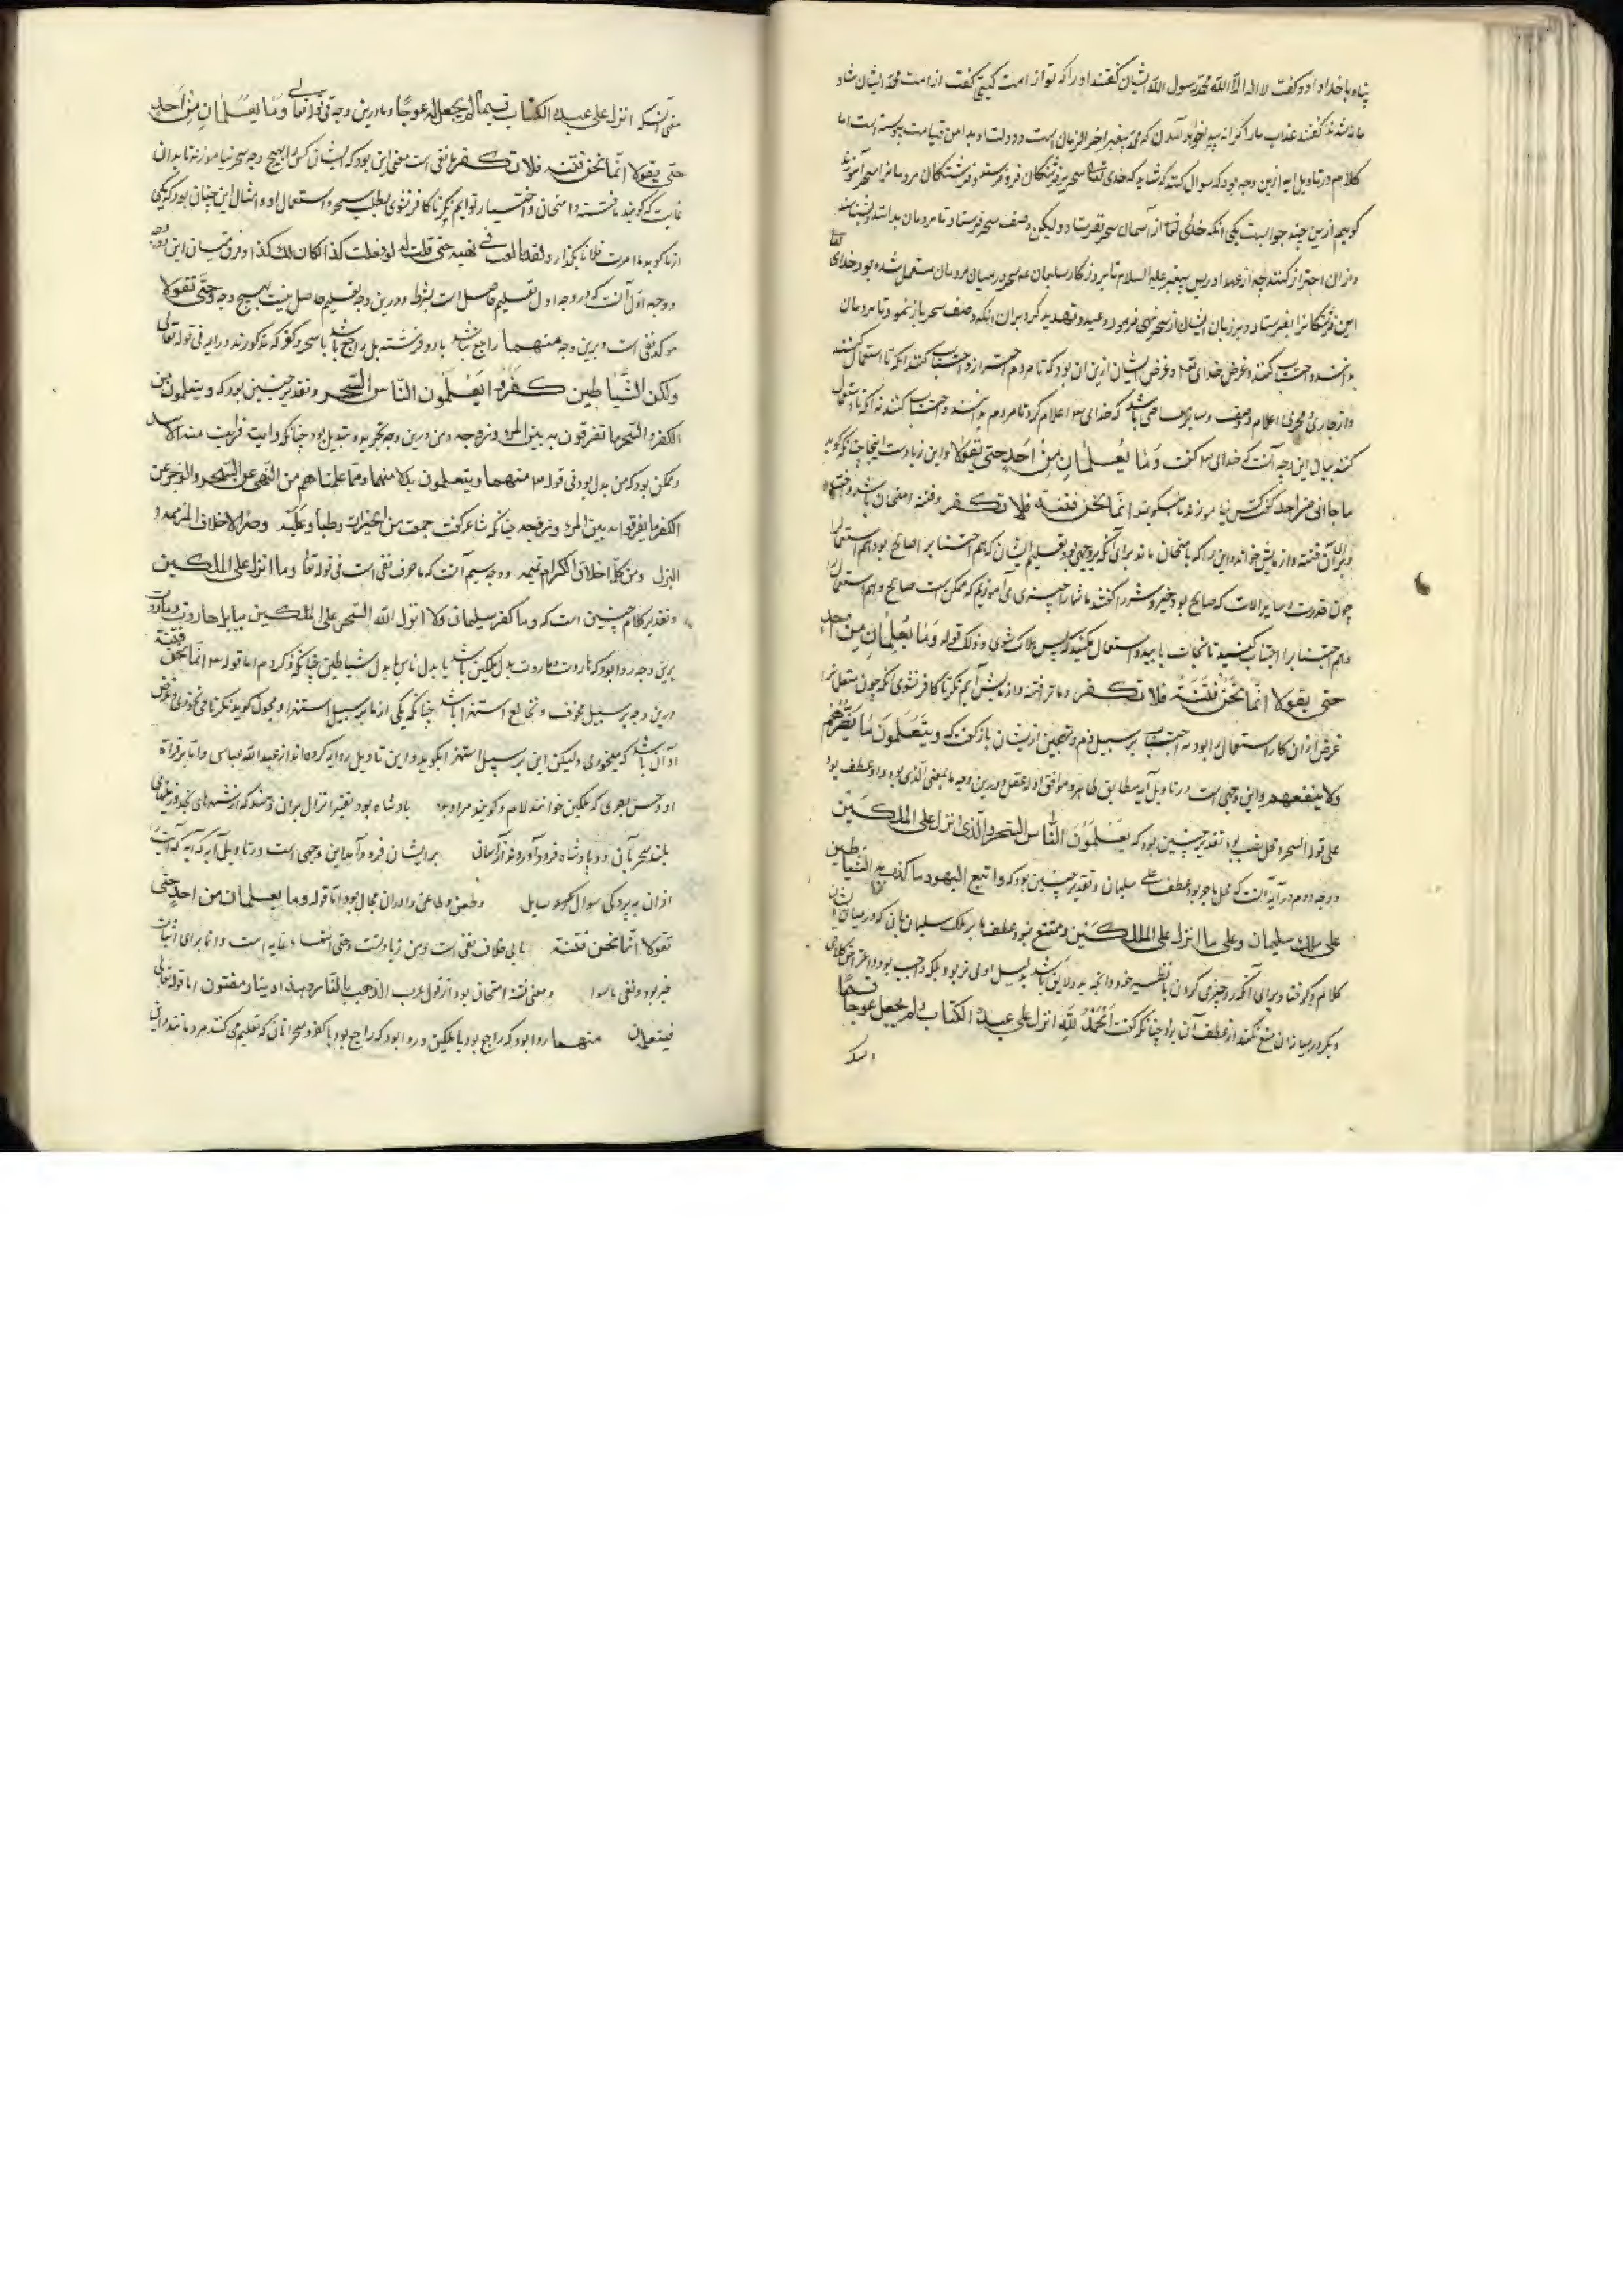 پناه باخدا داد و گفت لا اله الا الله محمد رسول الله ایشان گفتند او را که تو از امت کیستی گفت از امت محمد ایشان شاد
مانه شدند گفتند عذاب ما را کرانه پدید خواهد آمدن که محمد پیغمبر آخر الزمان است و دولت او بدامن قیامت پیوسته است اما
کلام در تاویل ایه ازین وجه بود که سوال کنند که شاید که خدای تعالی سحر بر فرشتگان فرو فرستد و فرشتگان مردمانرا سحر آموزند
گوییم ازین چند جوابست یکی انکه خدای تعالی از آسمان سحر نفرستاد و لیکن وصف سحر فرستاد تا مردمان بدانند و بشناسند
و ازان احتراز کنند چه از عهد ادریس پیغمبر علیه السلام تا بروزگار سلیمان علم سحر در میان مردمان مستعمل شده بود خدای تعالی
این فرشتگانرا بفرستاد و بر زبان ایشان از سحر نهی فرمود و وعید و تهدید کرد بران انکه وصف سحر باز نمود تا مردمان
بدانند و اجتناب کنند و غرض خدای تعالی و غرض ایشان ازین ان بود که تا مردم احتراز و اجتناب کنند نه انکه تا استعمال کنند
و از جاری مجری اعلام وصف و سایر معاصی باشد که خدای تعالی اعلام کرد تا مردم بدانند و اجتناب کنند نه انکه تا استعمال
کنند بیان این وجه آنست که خدای تعالی گفت وَمَا يُعَلِّمَانِ مِنْ اَحَدٍ حتى يقولا و این زیادست اینجا چنانکه گوید
ما جاانی من احد گفت کس نیاموزند تا نگویند انما نحن فتنة فلا تكفر و فتنه امتحان باشد و اختبار
و برای آن فتنه و ازمایش خواند و این را که بامتحان ماند برای آنکه بر وجهی بود تعلیم ایشان که هم اجتناب را صالح بود هم استعمال را
چون قدرت و سایر الات که صالح بود خیر و شر را گفتند ما شما را چیزی می آموزیم که ممکن است صالح و هم استعمال را
و هم اجتناب را اجتناب کنید تا نجات یابید و استعمال مکنید که پس هلاک شوی و ذلک قوله وَمَا يُعَلِّمَانِ مِنْ احد
حتى يقولا انما نحن فتنة فلا تكفر و ما تر فتنه و ازمایش آیم نگر تا کافر نشوی انکه چون متعلمانرا
غرض ازان کار استعمال را بود نه اجتناب بر سبیل ذم و تهجین ازیشان باز گفت که ويتعلمون ما يضرهم
ولا ينفعهم و این وجهی است در تاویل آیه مطابق ظاهر و موافق ادله عقل و درین وجه ما بمعنی الذی بود و او عطف بود
علی قوله السحر و محل نصب بود و تقدیر چنین بود که يعلمون الناس السحر والذى انزل على الملكين
و وجه دوم در آیه آنست که محل ما جر بود عطف علی سلیمان و تقدیر چنین بود که واتبع اليهود ما كذب به الشياطين
على ملك سليمان وعلى ما انزل على الملكين و ممتنع نبود عطف ما بر ملک سلیمان با آن که در میان ایشان
کلام دیگر افتاد و برای آنکه رد چیزی کردن با نظیر خود و انچه بدو لایق باشد بدلیل اولی تر بود و بلکه واجب بود و اعتراض کلامی
دیگر در میانه ان منع نکند از عطف آن برو چنانکه گفت الحمد لله انزل على عبده الكتاب ولم يجعل عوجا قيما
معنی انکه انزل على عبده الكتاب قيما لم يجعل له عوجا و ما درین وجه فی قوله تعالی وما يعلمان من احد
حتى يقولا انما نحن فتنة فلا تكفر ما نفی است معنی این بود که ایشان کس را بهیچ وجه سحر نیاموزند تا بدان
غایت که گویند ما فتنه و امتحان و اختبار توایم نگر تا کافر نشوی بطلب سحر و استعمال او و امثال این چنان بود که یکی
از ما گوید ما امرت فلانا بکذا و لقد بالغت فی نهیه حتی قلت له لو فعلت كذا لكان لك كذا و فرق میان این وجه
و وجه اول آنست که در وجه اول تعلیم حاصل است بشرط و درین وجه تعلیم حاصل نیست بهیچ وجه و حتى يقولا
موکد نفی است و برین وجه منهما راجع نباشد با دو فرشته بل راجع باشد با سحر و کفر که مذکورند در ایه فی قوله تعالی
ولكن الشياطين كفروا يعلمون الناس السحر و تقدیر چنین بود که ويتعلمون من
الكفر والسحر ما تفرقون به بين المرء وزوجه و من درین وجه تجرید و تبدیل بود چنانکه رایت فرایت منه الاسد
و ممکن بود که من بدل بود فی قوله تعالی منهما ويتعلمون بدلا منهما ومما علمناهم من النهى عن السحر والزجر عن
الكفر ما يفرقوا به بين المرء وزوجه چنانکه شاعر گفت جمعت من الخيرات وطبا وعلبة وصرا لاخلاف المزممة
البزل ومن كل اخلاق الكرام نميمة و وجه سیم آنست که ما حرف نفی است فی قوله تعالی وما انزل على الملكين
و تقدیر کلام چنین است که وما كفر سليمان ولا انزل الله السحر على الملكين ببابل هاروت وماروت
برین وجه روا بود که هاروت و ماروت بدل ملکین باشد یا بدل ناس یا بدل شیاطین چنانکه ذکر کردم اما قوله تعالی انما نحن فتنة
درین وجه بر سبیل مخوف و تخالع استهزا باشد چنانکه یکی از ما بر سبیل استهزا و مجون گوید نگر تا می نخوری و غرض
او آن باشد که میخوری ولیکن این بر سبیل استهزا بگوید و این تاویل روایه کرده‌اند از عبدالله عباس و اما بر قراة
او و حسن بصری که ملکین خوانند لام و گویند مراد بدو پادشاه بود
بلند سحر بآن دو پادشاه فرود آوردند از آسمانی برایشان فرود آمد این وجهی است در تاویل آیه
ازان به بود که سوال سایل و طعن و طاعن را دران مجال بود و اما قوله وما يعلمان من احد حتى
يقولا انما نحن فتنة ما بی خلاف نفی است و من زیادتست و حتی انتها و غایه است و انما برای اثبات
خبر بود و نفی ما سوا و معنی فتنه امتحان بود از قول عرب الذهب بالنار و هذا دينار مفتون اما قوله تعالی
فيتعلمون منهما روا بود که راجع بود با ملکین و روا بود که راجع بود با کفر و سحر